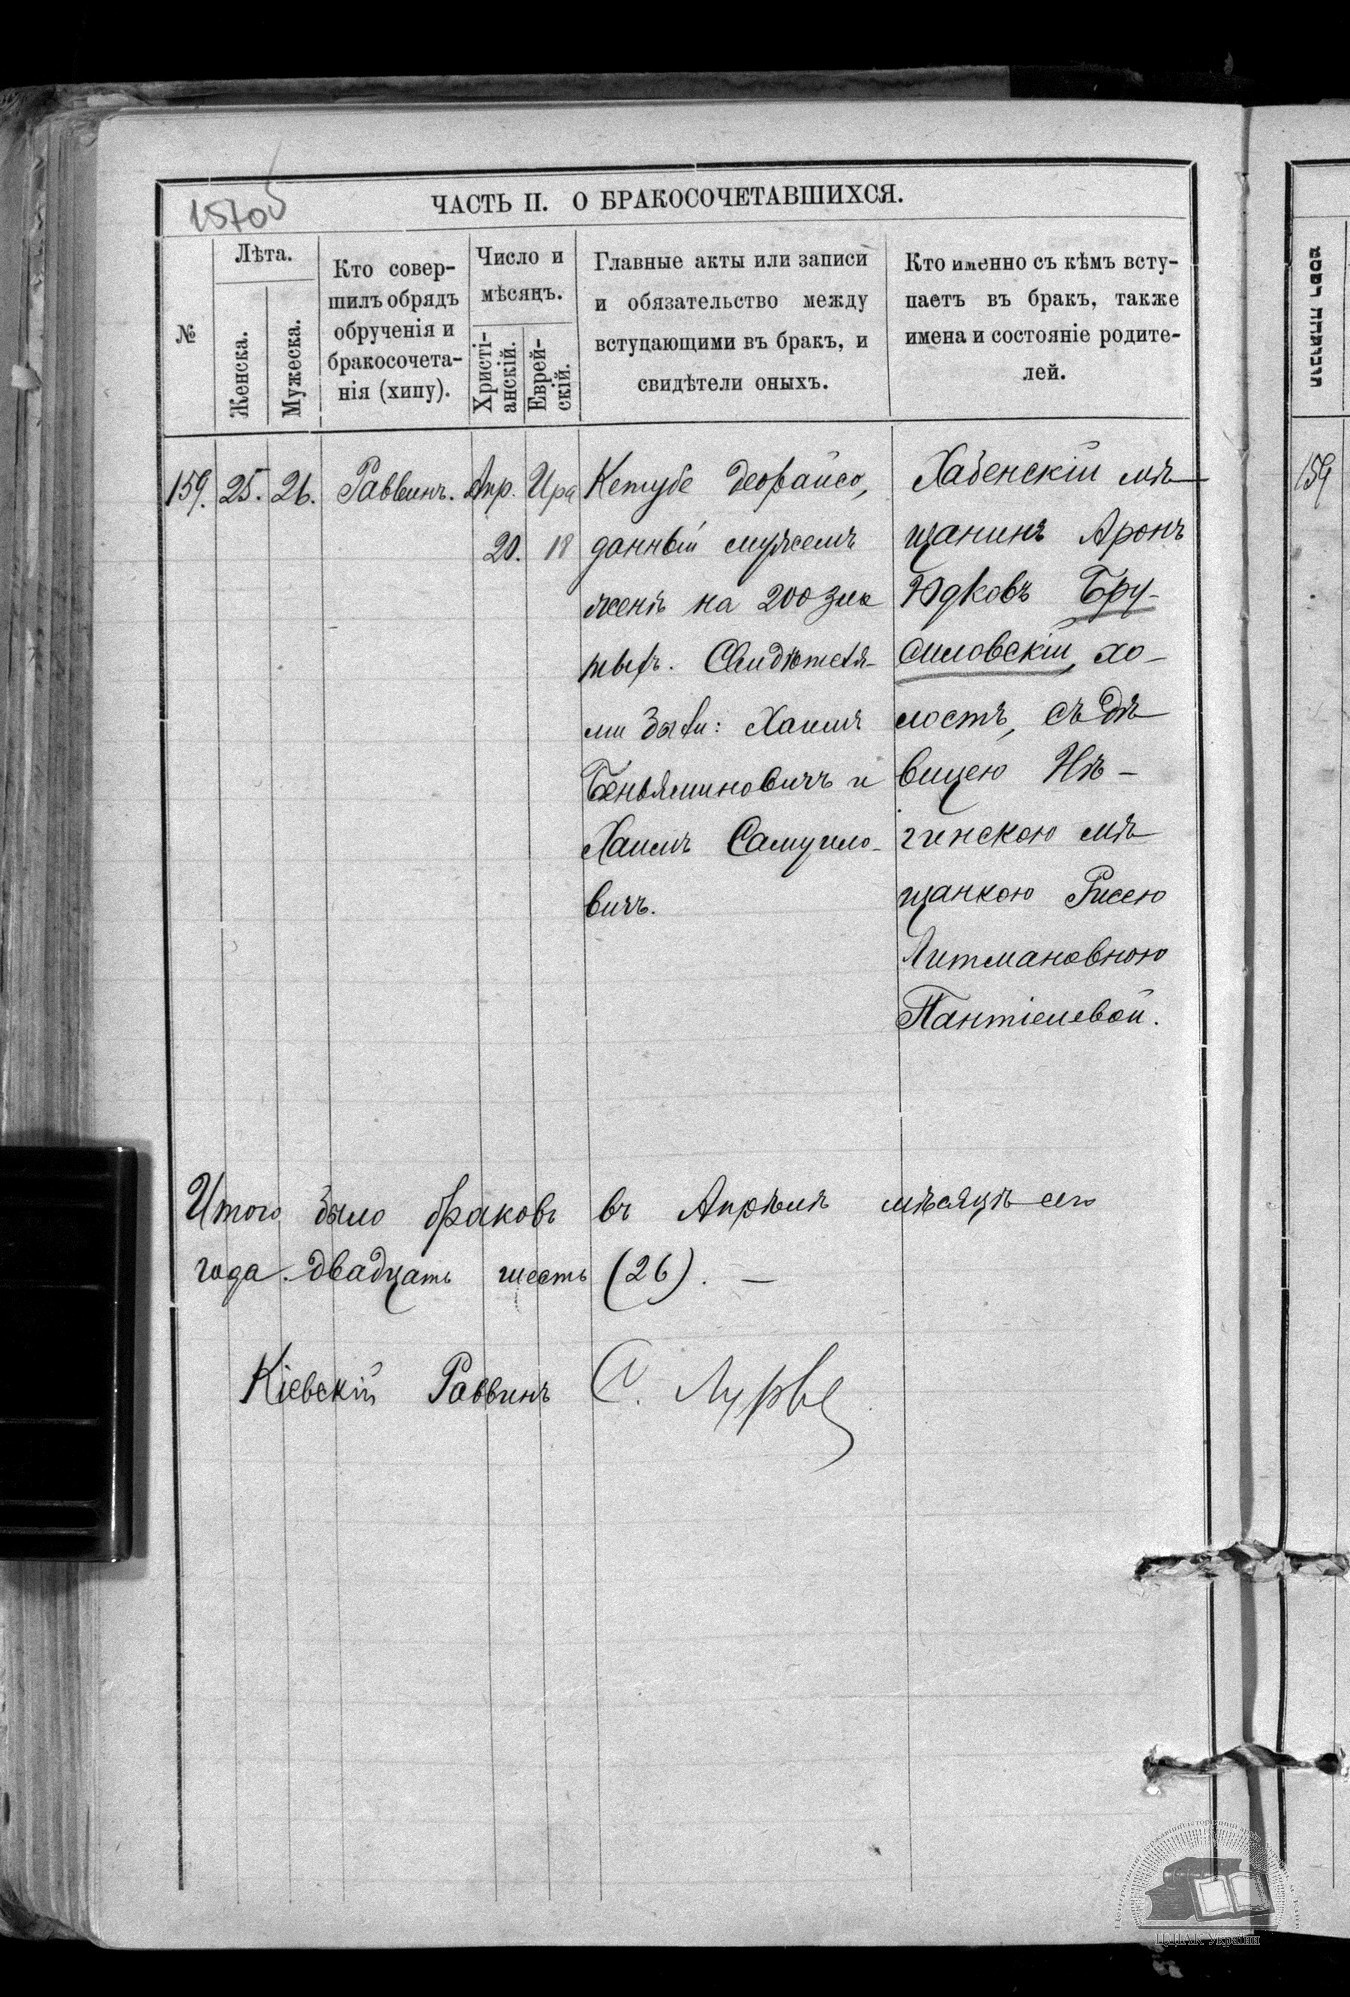 1570б
ЧАСТЬ II. О БРАКОСОЧЕТАВШИХСЯ.
№
Лѣта.
Женска.
Мужеска.
Кто совер-
шилъ обрядъ
обрученія и
бракосочета-
нія (хипу).
Число и
мѣсяцъ.
Христі-
анскій.
Еврей-
скій.
Главные акты или записи
и обязательство между
вступающими въ бракъ, и
свидѣтели оныхъ.
Кто именно съ кѣмъ всту-
паетъ въ бракъ, также
имена и состояніе родите-
лей.
159. 25. 26. Раввинъ. Апр. Ира
20. 18
Кетубе деорайсо,
данный мужемъ
женѣ на 200 зло
тыхъ. Свидѣтеля-
ми были: Хаимъ
Беньяминовичъ и
Хаимъ Самуило-
вичъ.
Хабенскій мѣ-
щанинъ Аронъ
Юдковъ Бру-
силовскій, хо-
лостъ, съ дѣ-
вицею Нѣ-
жинскою мѣ-
щанкою Рисею
Литмановною
Пантіелевой.
Итого было браковъ въ Апрѣлѣ мѣсяцѣ сего
года двадцать шесть (26). —
Кіевскій Раввинъ С. Лурье
159
ЦДІАК України